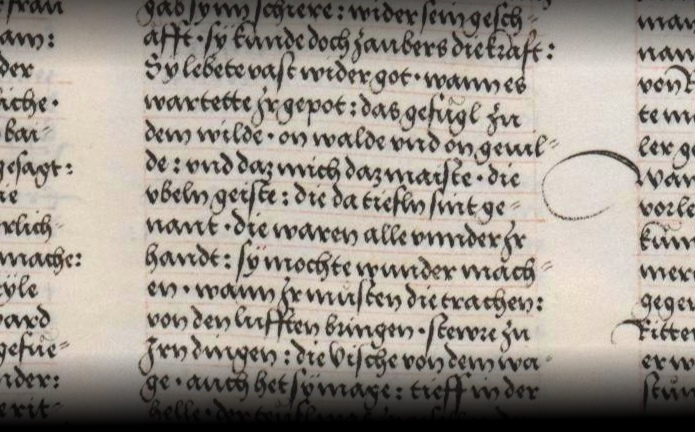 frau
am:
der
iche ·
bai-
gesagt:
ie
rlich-
mache:
eyle
ward
gefue=
nder:
erit-
gab synn schiere : wider sein gesch=
äfft · sÿ kunde doch zaubers die kraft :
Sÿ lebete vast wider got · wann es
wartette Jr gepot : das gefügl zu
dem wilde · on walde vnd on geuil=
de : vnd daz mich daz maiste · die
vbeln geiste : die da tiefln sint ge=
nant · die waren alle vnnder Jr
handt : sÿ mochte wunder mach=
en · wann Jr müsten die trachen :
von den lufften bringen · stewre zu
Jrn dingen : die Vische von dem wa=
ge · auch het sÿ mage : tieff in der
helle · der
man
nam
von
te
ler ge
wan
vorle
kün
mer
gegen
Ritte
er w